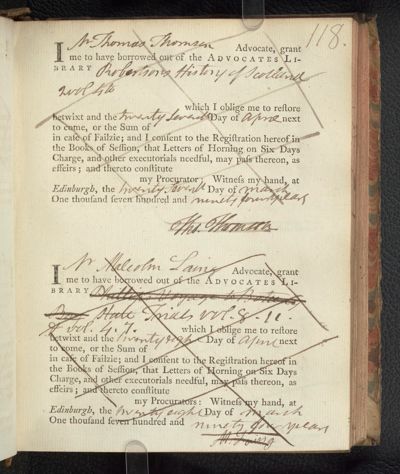 118.
I Mr Thomas Thomson Advocate, grant
me to have borrowed out of the ADVOCATES LI-
BRARY Robertson's History of Scotland
2 vol. 4to
which I oblige me to restore
betwixt and the twenty seventh Day of April next
to come, or the Sum of
in case of Failzie; and I consent to the Registration hereof in
the Books of Session, that Letters of Horning on Six Days
Charge, and other executorials needful, may pass thereon, as
effeirs; and thereto constitute
my Procurator: Witness my hand, at
Edinburgh, the twenty seventh Day of March
One thousand seven hundred and ninety four years
Tho. Thomson
I Mr Malcolm Laing Advocate, grant
me to have borrowed out of the ADVOCATES LI-
BRARY
State Trials vol. 8. 11.
vol. 4. 7. which I oblige me to restore
betwixt and the twenty eight Day of April next
to come, or the Sum of
in case of Failzie; and I consent to the Registration hereof in
the Books of Session, that Letters of Horning on Six Days
Charge, and other executorials needful, may pass thereon, as
effeirs; and thereto constitute
my Procurators: Witness my hand, at
Edinburgh, the twenty eight Day of March
One thousand seven hundred and ninety four years
M. Laing